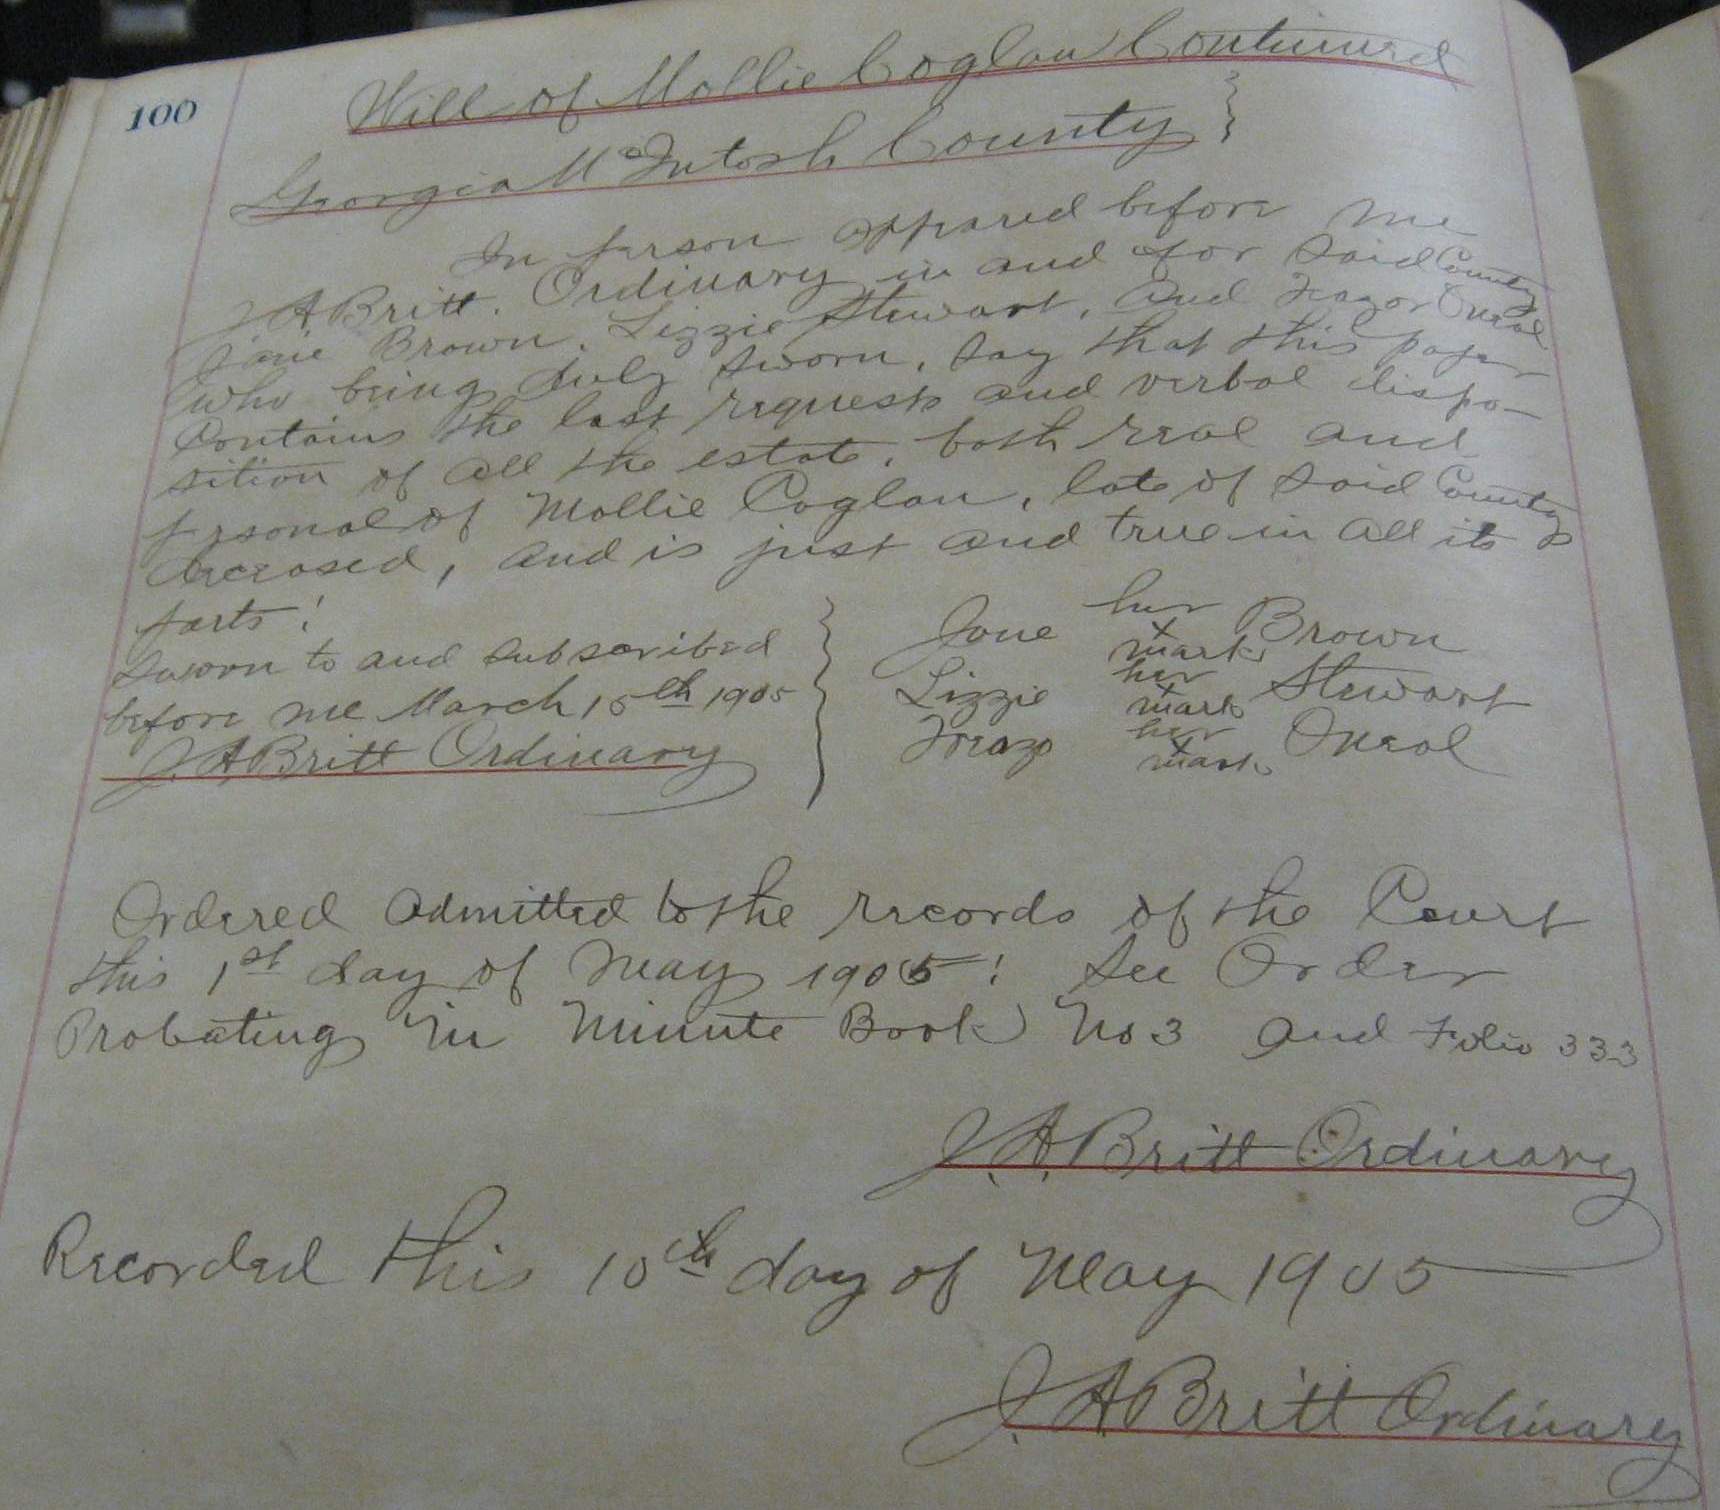 100
Will of Mollie Coglan Continued
Georgia McIntosh County }
In person appared before me
J A Britt. Ordinary in and for said County
Jane Brown. Lizzie Stewart, and Oneal
who being duly sworn, say that this paper
Contains the last requests and verbal dispo-
sition of all the estate, both real and
personal of Mollie Coglan, late of said County
deceased, and is just and true in all its
parts!
Sworn to and subscribed
before me March 15th 1905
J. A Britt Ordinary
Jane her x mark Brown
Lizzie her x mark Stewart
her x mark Oneal
Ordered admitted to the records of the Court
this 1st day of May 1905! See Order
Probating in Minute Book No 3 and Folio 333
J. A. Britt Ordinary
Recorded this 10th day of May 1905
J. A Britt Ordinary